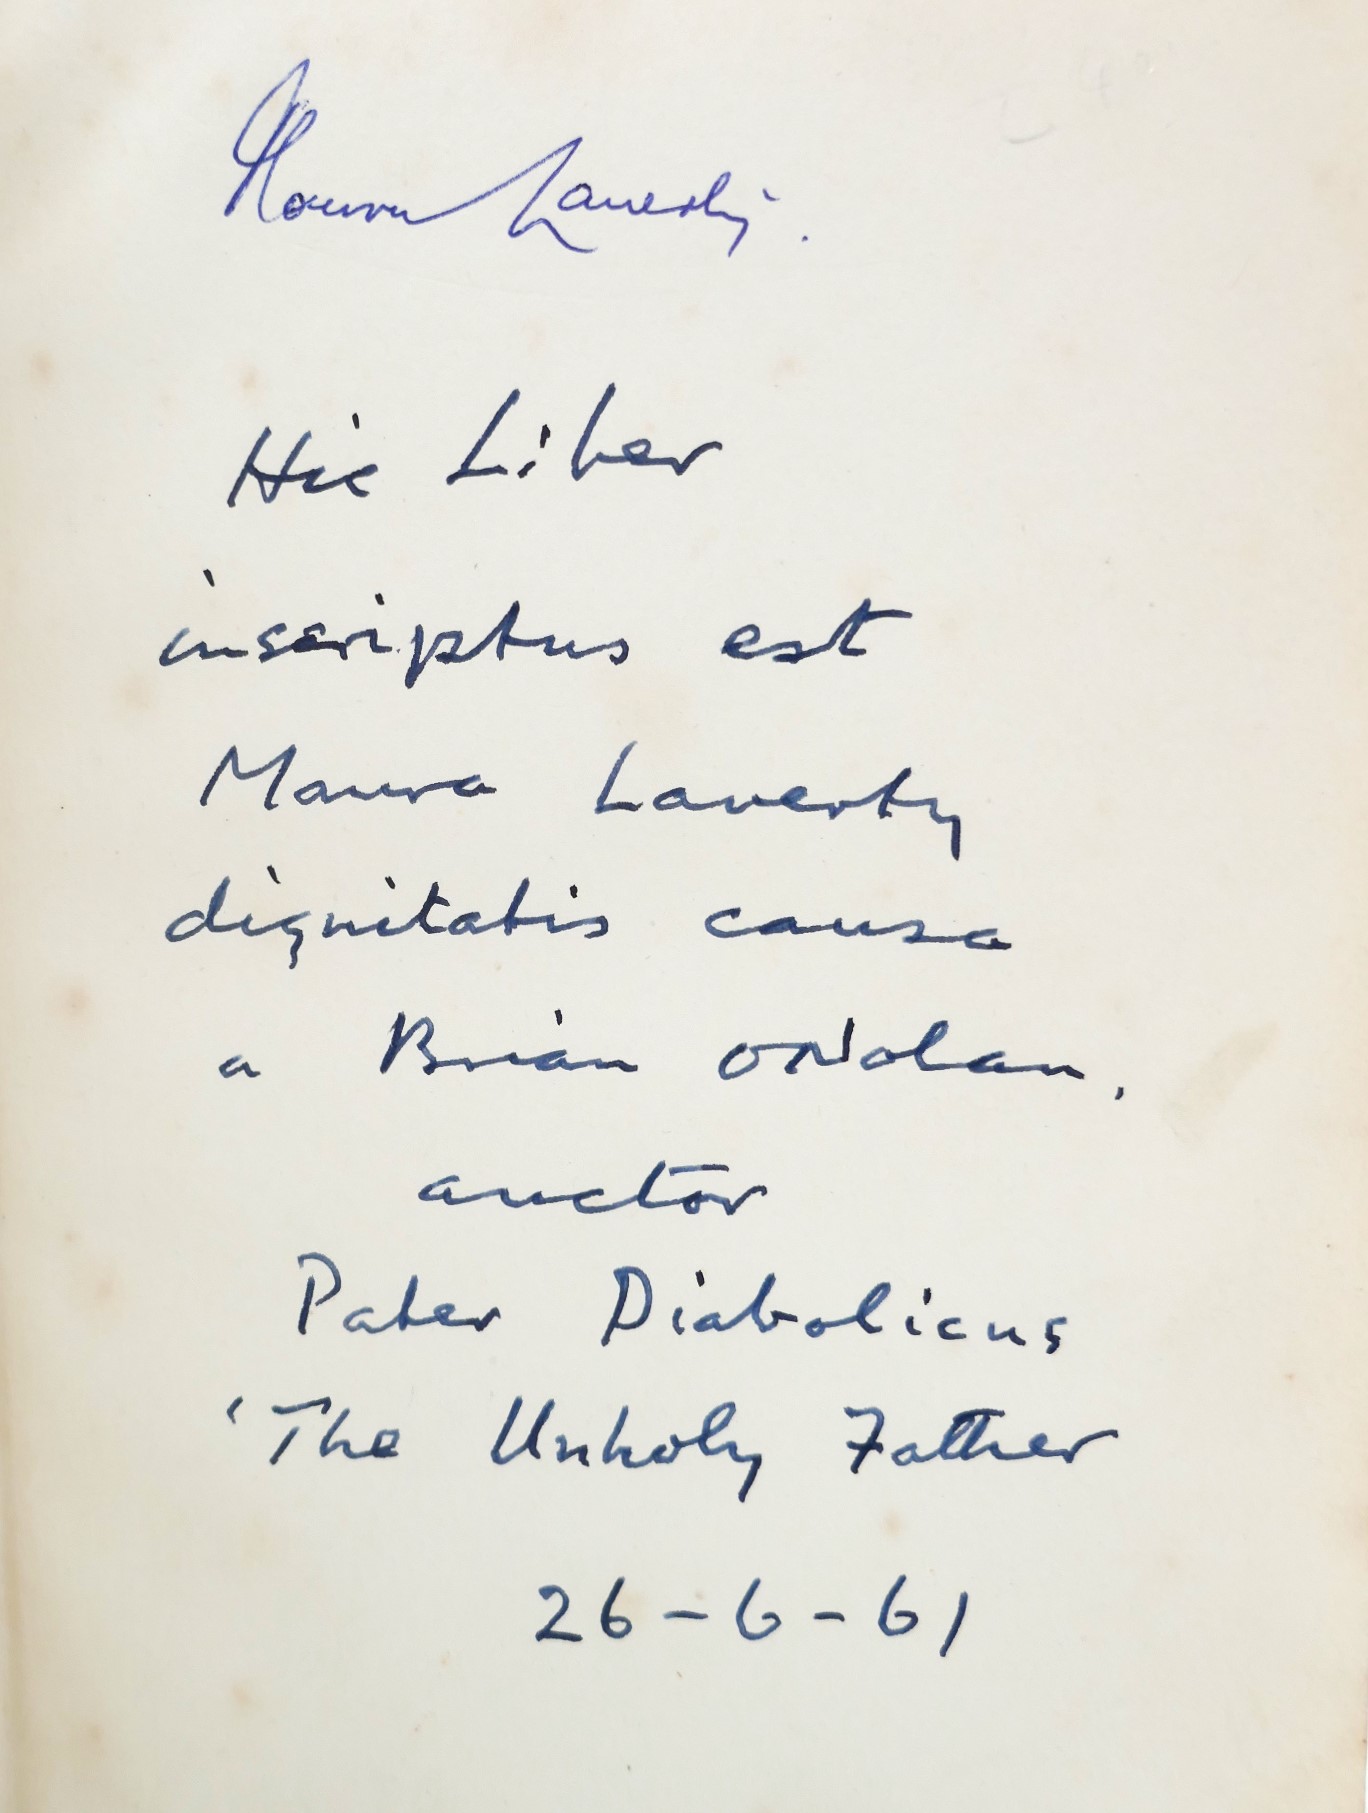 Maura Laverty.
Hic Liber
inscriptus est
Maura Laverty
dignitatis causa
a Brian ONolan,
auctor
Pater Diabolicus
'The Unholy Father
26-6-61